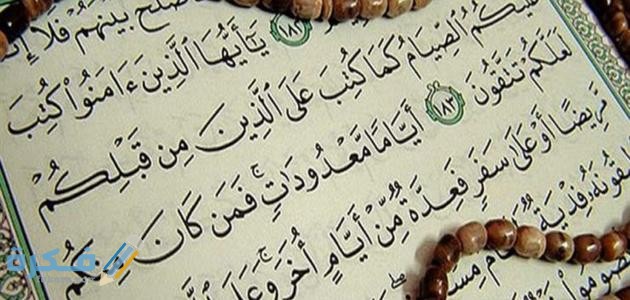 صْلَحَ بَيْنَهُمْ فَلَآ
١٨٢ يَٰٓأَيُّهَا ٱلَّذِينَ ءَامَنُوا۟ كُتِبَ
لَيْكُمُ ٱلصِّيَامُ كَمَا كُتِبَ عَلَى ٱلَّذِينَ مِن قَبْلِكُمْ
لَعَلَّكُمْ تَتَّقُونَ ١٨٣ أَيَّامًا مَّعْدُودَٰتٍ ۚ فَمَن كَانَ مِنكُم
مَّرِيضًا أَوْ عَلَىٰ سَفَرٍ فَعِدَّةٌ مِّنْ أَيَّامٍ أُخَرَ ۚ وَعَلَى
يقُونَهُۥ فِدْيَةٌ طَعَامُ
فكرة